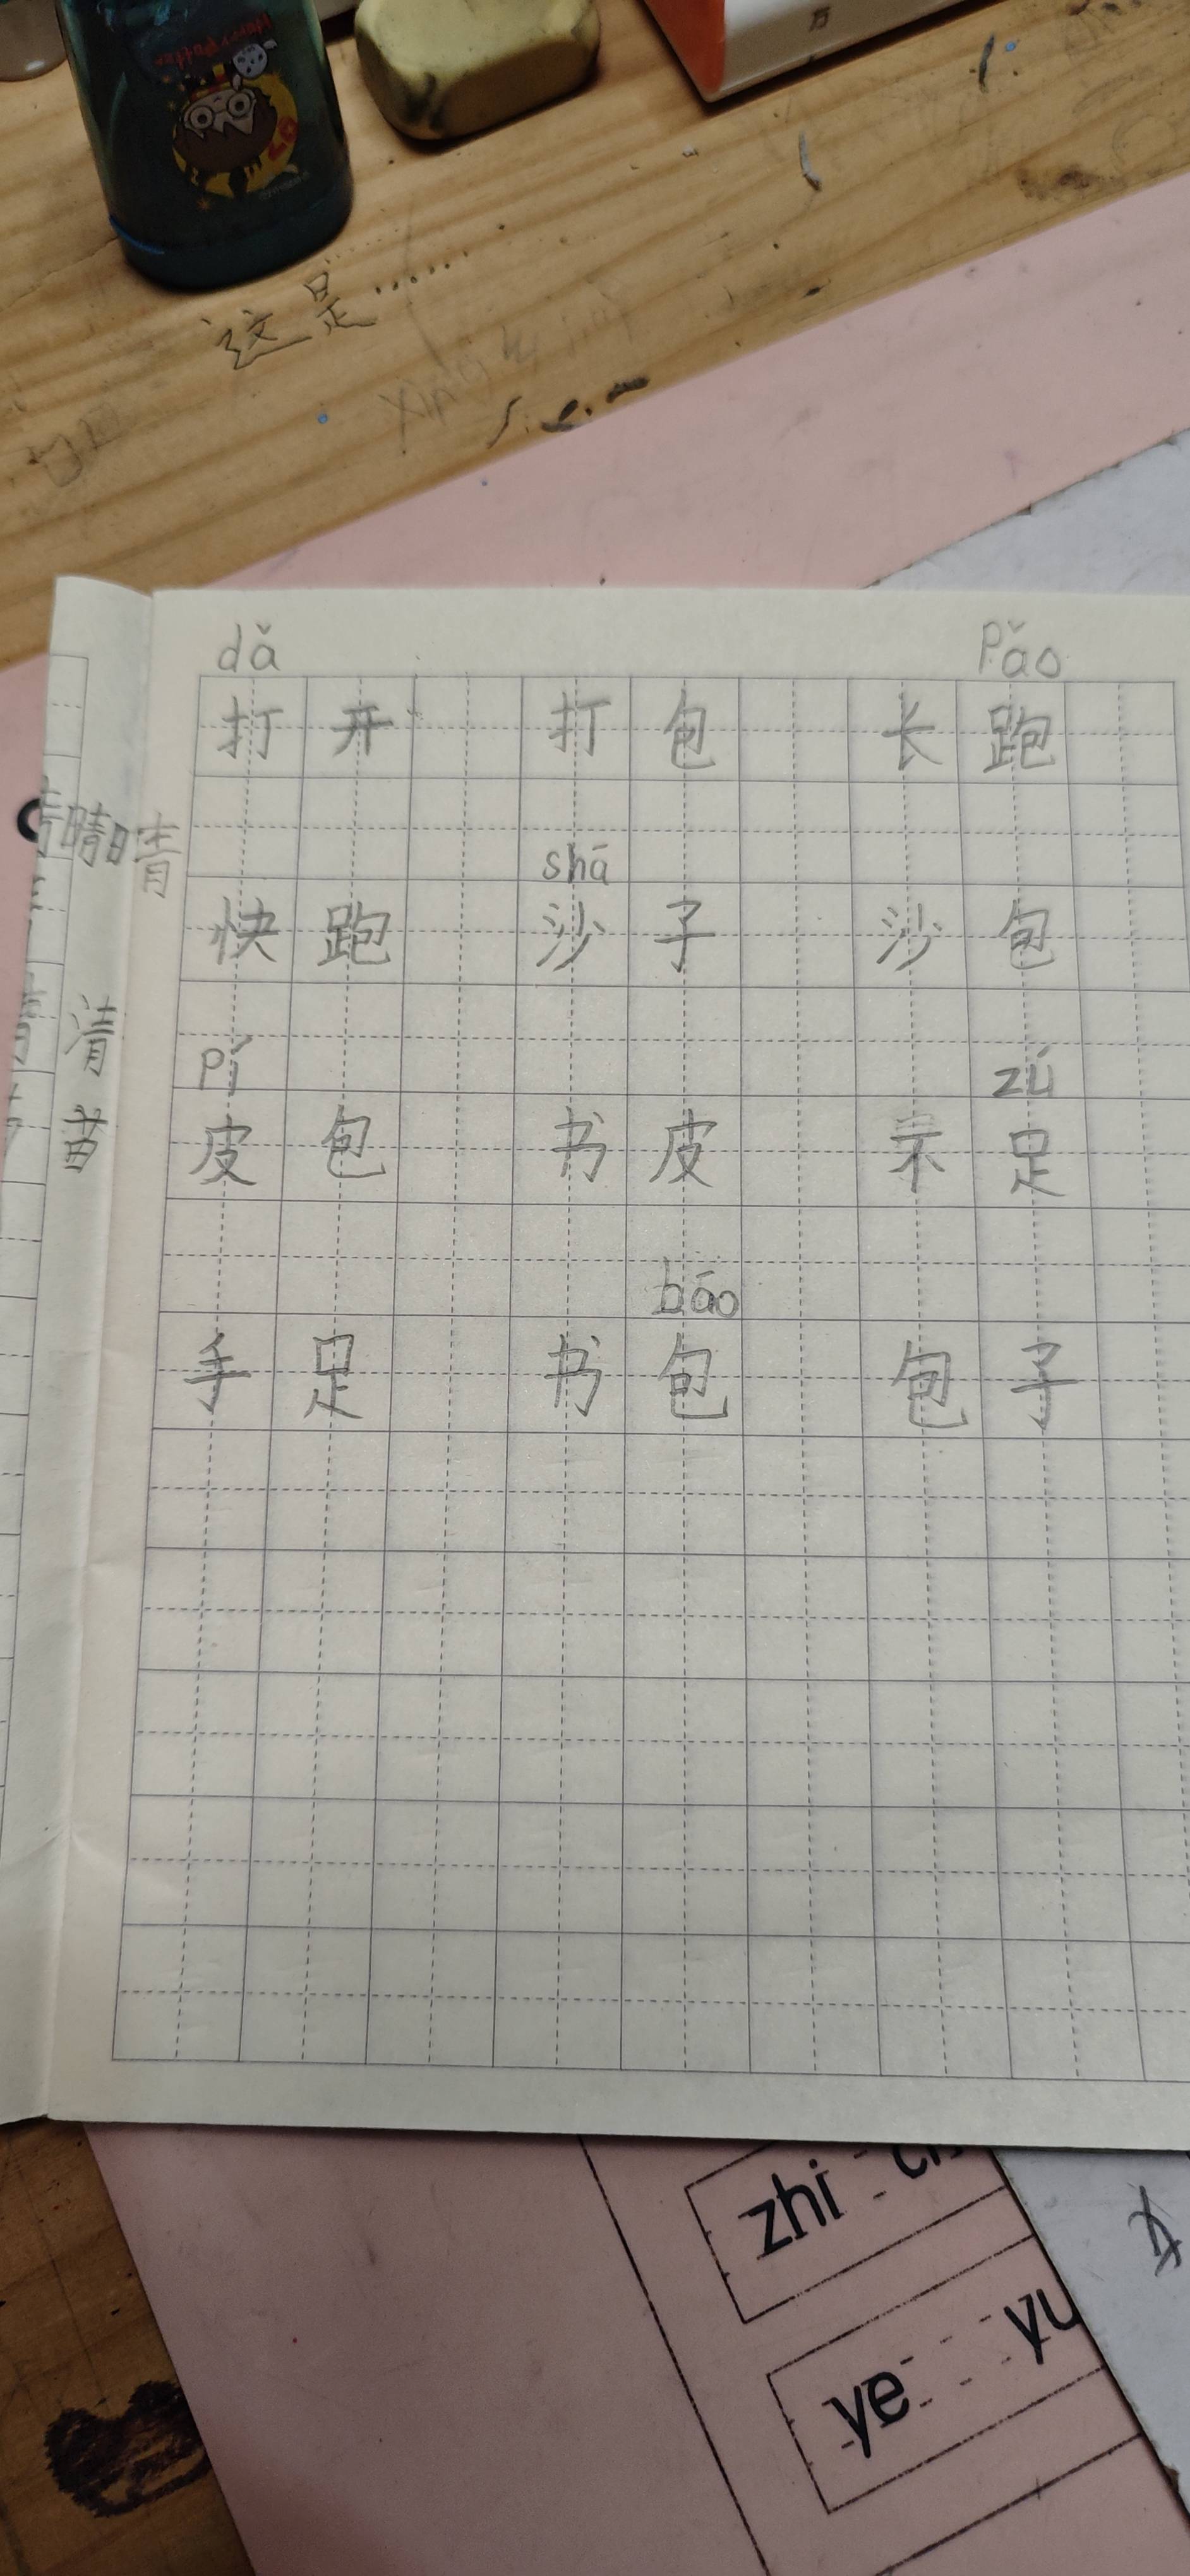 Harry Potter
这是……
xing
dǎ pǎo
打开 打包 长跑
晴 晴
shā
快跑 沙子 沙包
清
pí zú
苗
皮包 书皮 不足
bāo
手足 书包 包子
zhi
ye yu